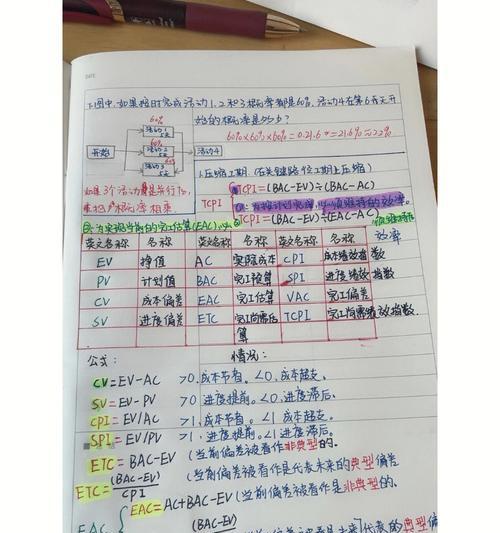 DATE
下图中,如果按时完成活动1、2和3概率都是60%,活动4在第6天开
始的概率是多少?
60%
60%×60%×60%=0.216=21.6%≈22%
活动1
5天
开始
活动2
5天
活动4
60%
活动3
5天
1.压缩工期。(在关键路径工期上压缩)
如果3个活动是并行的,
概率相乘。
TCPI
①TCPI=(BAC-EV)÷(BAC-AC)
为按计划完成,必须维持的效率。
②TCPI=(BAC-EV)÷(EAC-AC)
②:为实现当前的完工估算(EAC),
必须维持
效率
英文名称 名称 英文名称 名称 英文名称 名称
EV 挣值 AC 实际成本 CPI 成本绩效指数
PV 计划值 BAC 完工预算 SPI 进度绩效指数
CV 成本偏差 EAC 完工估算 VAC 完工偏差
SV 进度偏差 ETC 完工尚需估算 TCPI 完工尚需绩效指数
公式: 情况:
CV=EV-AC >0,成本节省。<0,成本超支。
SV=EV-PV >0 进度提前。<0,进度滞后。
CPI=EV/AC >1,成本节省。<1 成本超支。
SPI=EV/PV >1,进度提前。<1 进度滞后。
ETC=BAC-EV (当前偏差被看作非典型的。
ETC=(BAC-EV)/CPI (当前偏差被看作是代表未来的典型偏差
EAC
EAC=AC+BAC-EV(当前偏差被看作是非典型的。
(BAC-EV)
代表的典型偏